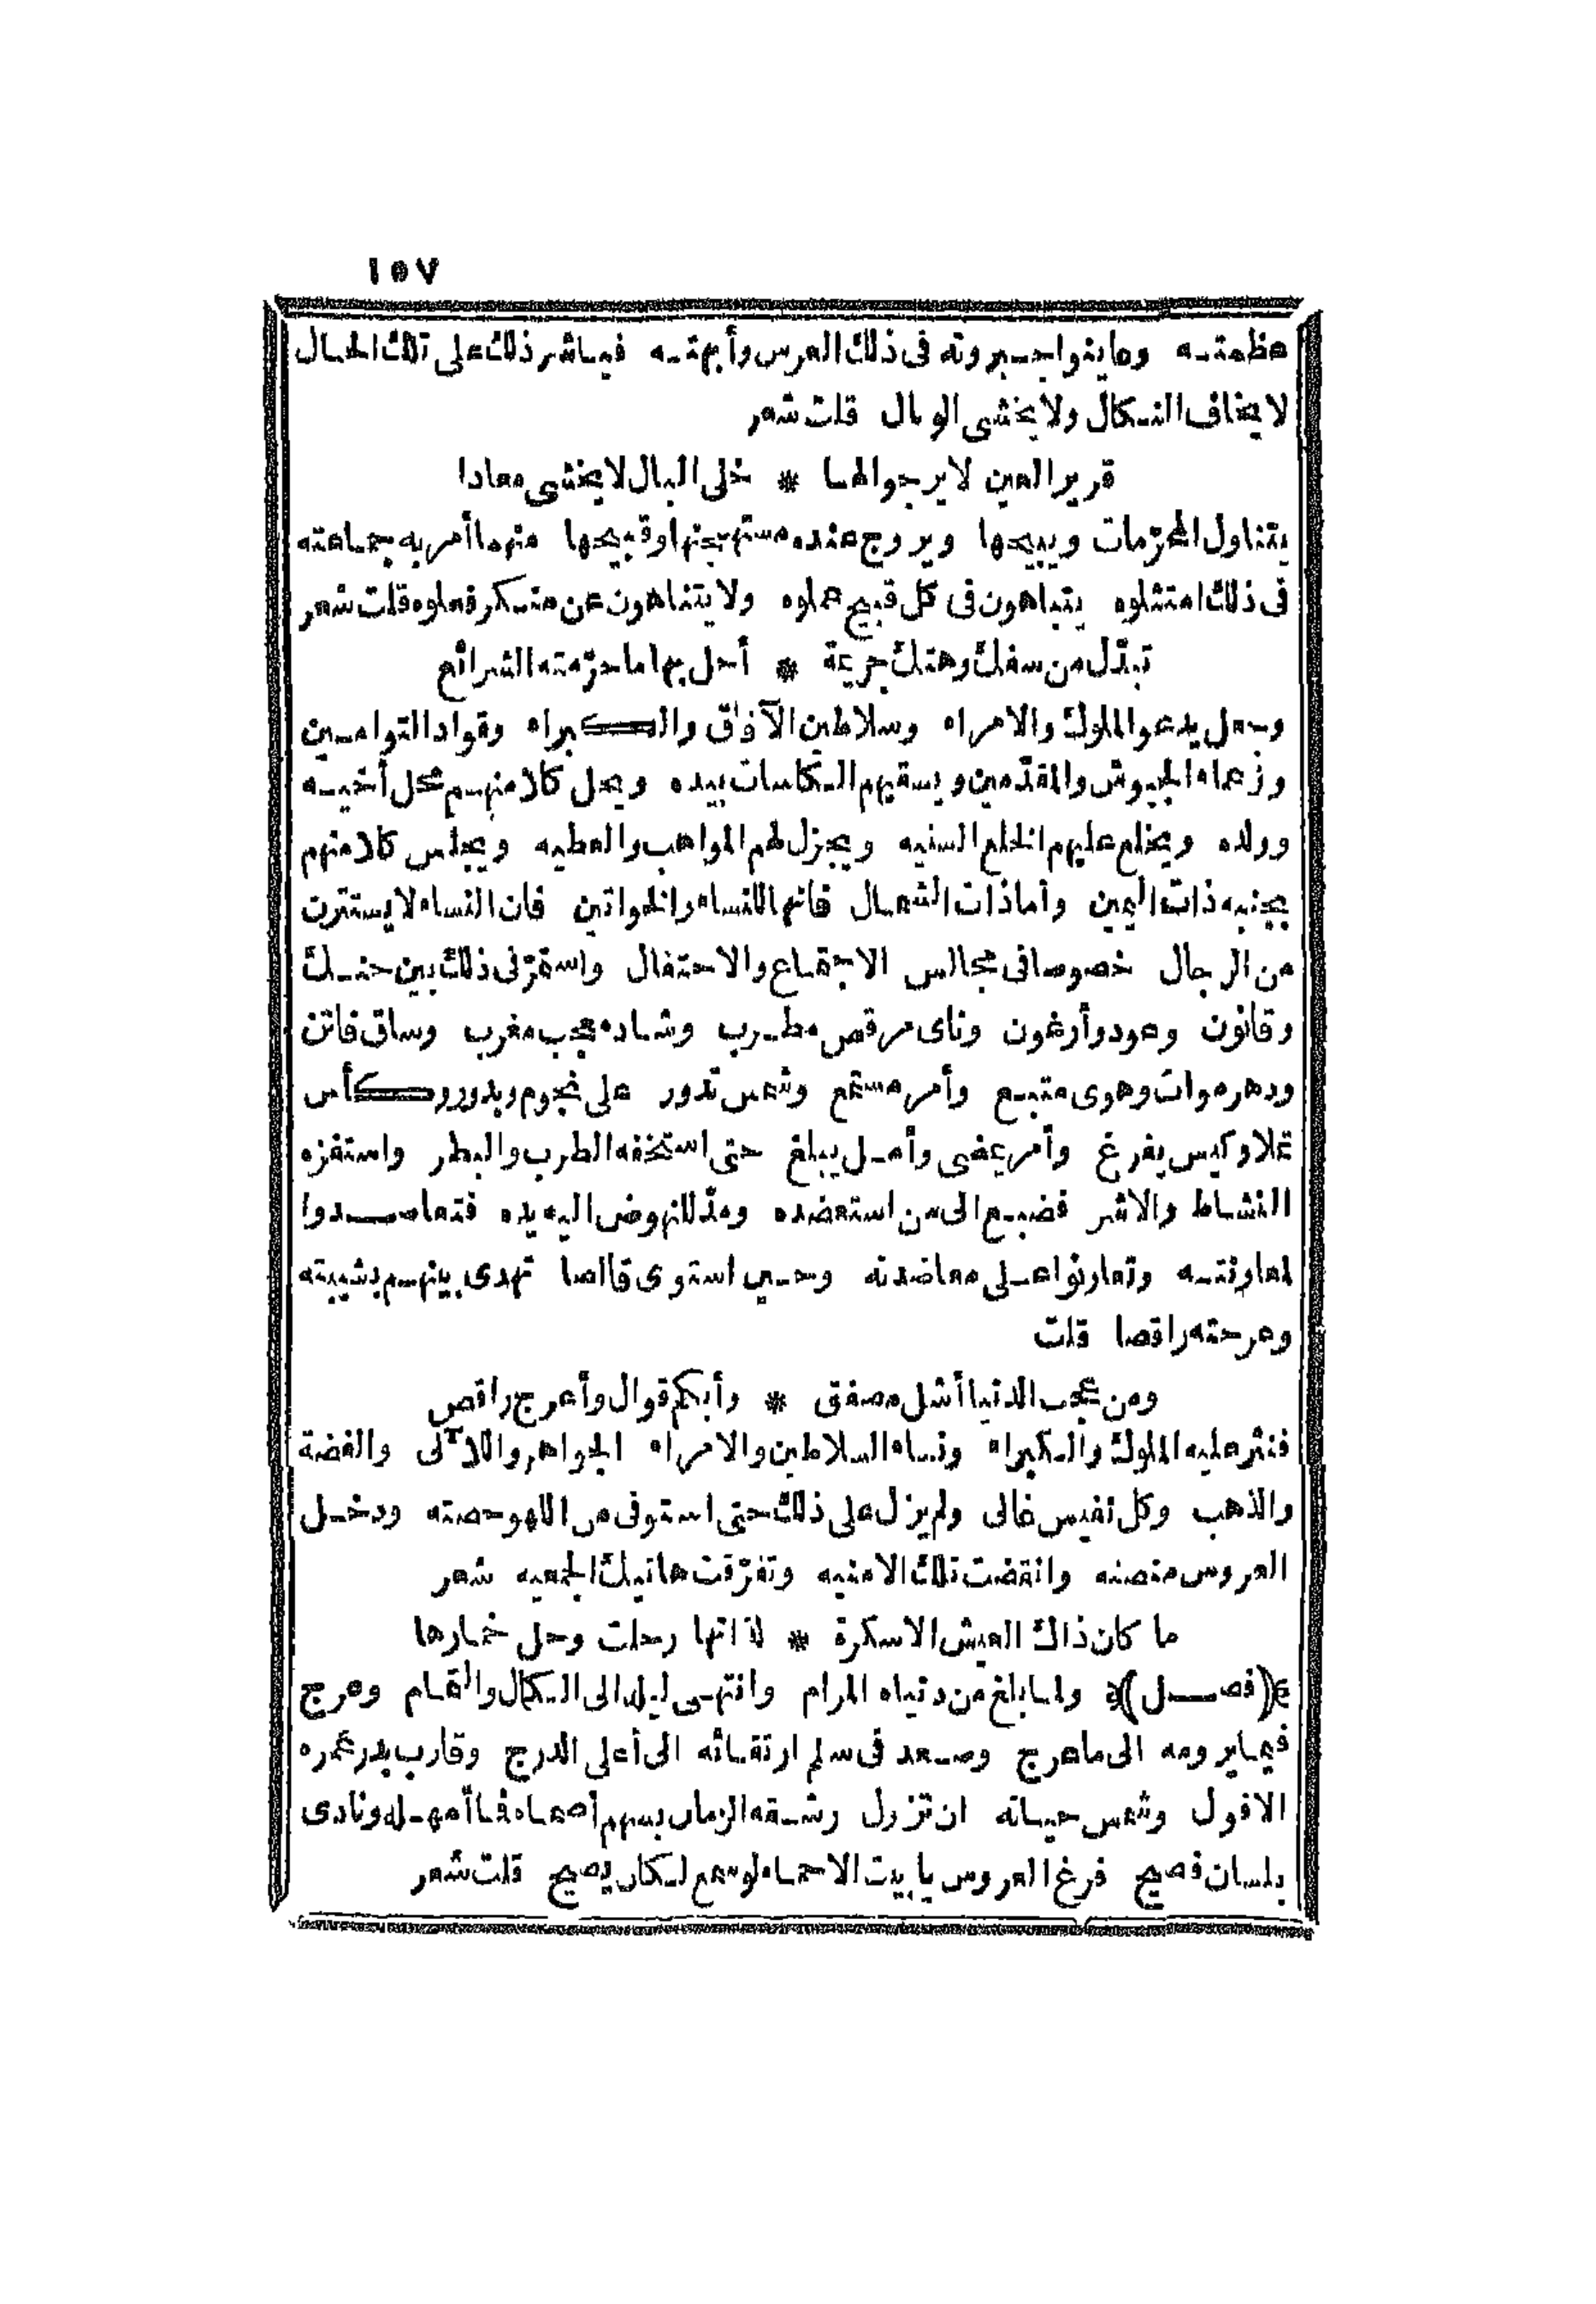 ١٥٧
عظمته وعاينوا جبروته فى ذلك العرس وأبهته فباشر ذلك على تلك الحال
لا يخاف النكال ولا يخشى الوبال قلت شعر
قرير العين لا يرجو الها * خلى البال لا يخشى معادا
يتناول المحرّمات ويبيحها ويروج عنده مستهجنها وقبيحها مهما أمر به جماعته
فى ذلك امتثلوه يتباهون فى كل قبيح عملوه ولا يتناهون عن منكر فعلوه قلت شعر
تبدّل من سفك وهتك جريمة * أحل بها ما حرّمته الشرائع
وجعل يدعو الملوك والامراء وسلاطين الآفاق والكبراء وقواد التوامين
وزعماء الجيوش والمقدّمين ويسقيهم الكاسات بيده ويحل كلا منهم محل أخيه
وولده ويخلع عليهم الخلع السنيه ويجزل لهم المواهب والعطيه ويجلس كلا منهم
بجنبه ذات اليمين وأما ذات الشمال فانها للنساء والخواتين فان النساء لا يستترن
من الرجال خصوصا فى مجالس الاجتماع والاحتفال واستمرّ فى ذلك بين جنك
وقانون وعود وأرغون وناى مرقص مطرب وشاد معجب مغرب وساق فاتن
ودهر موات وهوى متبع وأمر مستمع وشمس تدور على نجوم وبدور وكأس
تملا وكيس يفرغ وأمر يمضى وأمل يبلغ حتى استخفه الطرب والبطر واستفزه
النشاط والاشر فضبع الى من استعضده ومدّ للنهوض اليه يده فتعاضدوا
لمعاونته وتعاونوا على معاضدته وحين استوى قالصا تهدى بينهم بشيبته
وعرجته راقصا قلت
ومن عجب الدنيا أشل مصفق * وأبكم قوال وأعرج راقص
فنثر عليه الملوك والكبراء ونساء السلاطين والامراء الجواهر واللآلى والفضة
والذهب وكل نفيس غالى ولم يزل على ذلك حتى استوفى من اللهو حصته ودخل
العروس منصته وانقضت تلك الامنيه وتفرّقت هاتيك الجمعيه شعر
ما كان ذاك العيش الا سكرة * لذاتها رحلت وحل خمارها
﴿(فصل)﴾ ولما بلغ من دنياه المرام وانتهى ليله الى الكمال والتمام وعرج
فيما يرومه الى ما عرج وصعد فى سلم ارتقائه الى أعلى الدرج وقارب بدر عمره
الافول وشمس حياته ان تزول رشقه الزمان بسهم أصماه فما أمهله ونادى
بلسان فصيح فرغ العروس يا بيت الاحماء لو سمع لكان يصيح قلت شعر